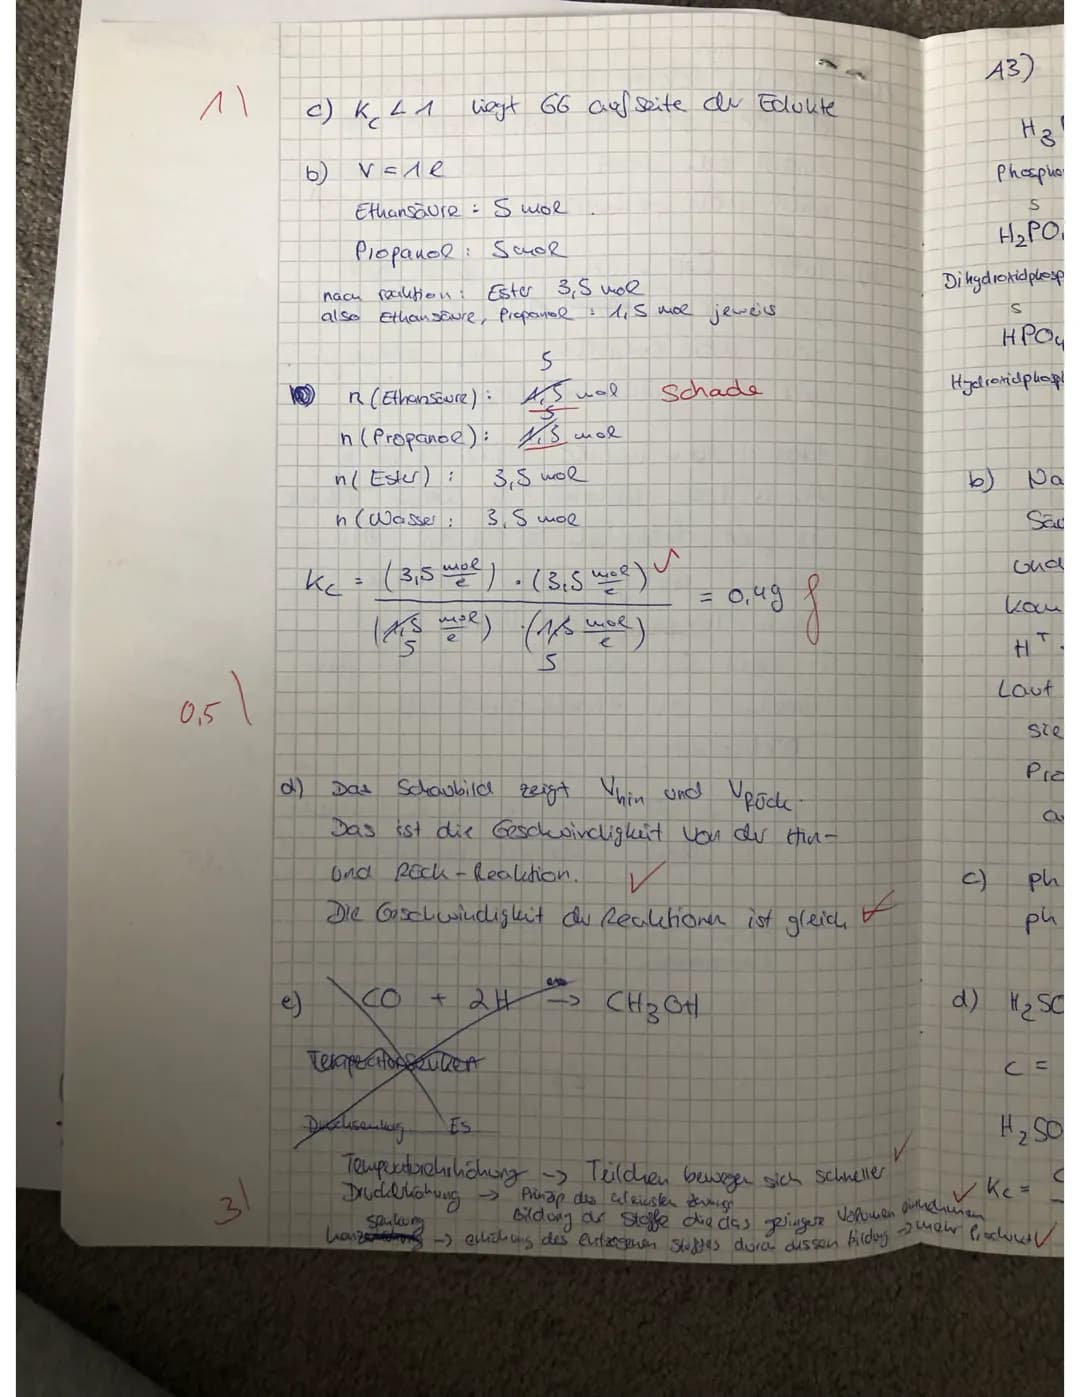 1
c) Kc < 1 liegt GG auf seite der Edukte
b) V = 1 l
Ethansäure : 5 mol
Propanol : 5 mol
nach reaktion : Ester 3,5 mol
also Ethansäure, Propanol : 1,5 mol jeweils
5
n (Ethansäure) : 1,5 mol Schade
5
n (Propanol) : 1,5 mol
n ( Ester ) : 3,5 mol
n (Wasser : 3,5 mol
Kc = (3,5 mol/l) · (3,5 mol/l) ✓
(1,5 mol/l) · (1,5 mol/l) = 0,49 f
5 5
0,5
d) Das Schaubild zeigt Vhin und VRück.
Das ist die Geschwindigkeit von der Hin-
und Rück-Reaktion. ✓
Die Geschwindigkeit der Reaktionen ist gleich ✓
e) CO + 2H -> CH3OH
Temperatursenken
Drucksenkung Es
Temperaturerhöhung -> Teilchen bewegen sich schneller ✓
Druckerhöhung -> Prinzip des kleinsten Zwangs
Bildung der Stoffe die das geringere Volumen einnehmen ✓
senkung
Konz -> erhöhung des entzogenen Stoffes durch dessen bildung -> mehr Produkt ✓
3
A3)
H3
Phospho
S
H2PO
Dihydroxidphosp
S
HPO4
Hydroxidphosp
b) Na
Säu
und
kan
H+
Laut
sie
Pro
a
c) ph
ph
d) H2SO
c =
H2SO
Kc =